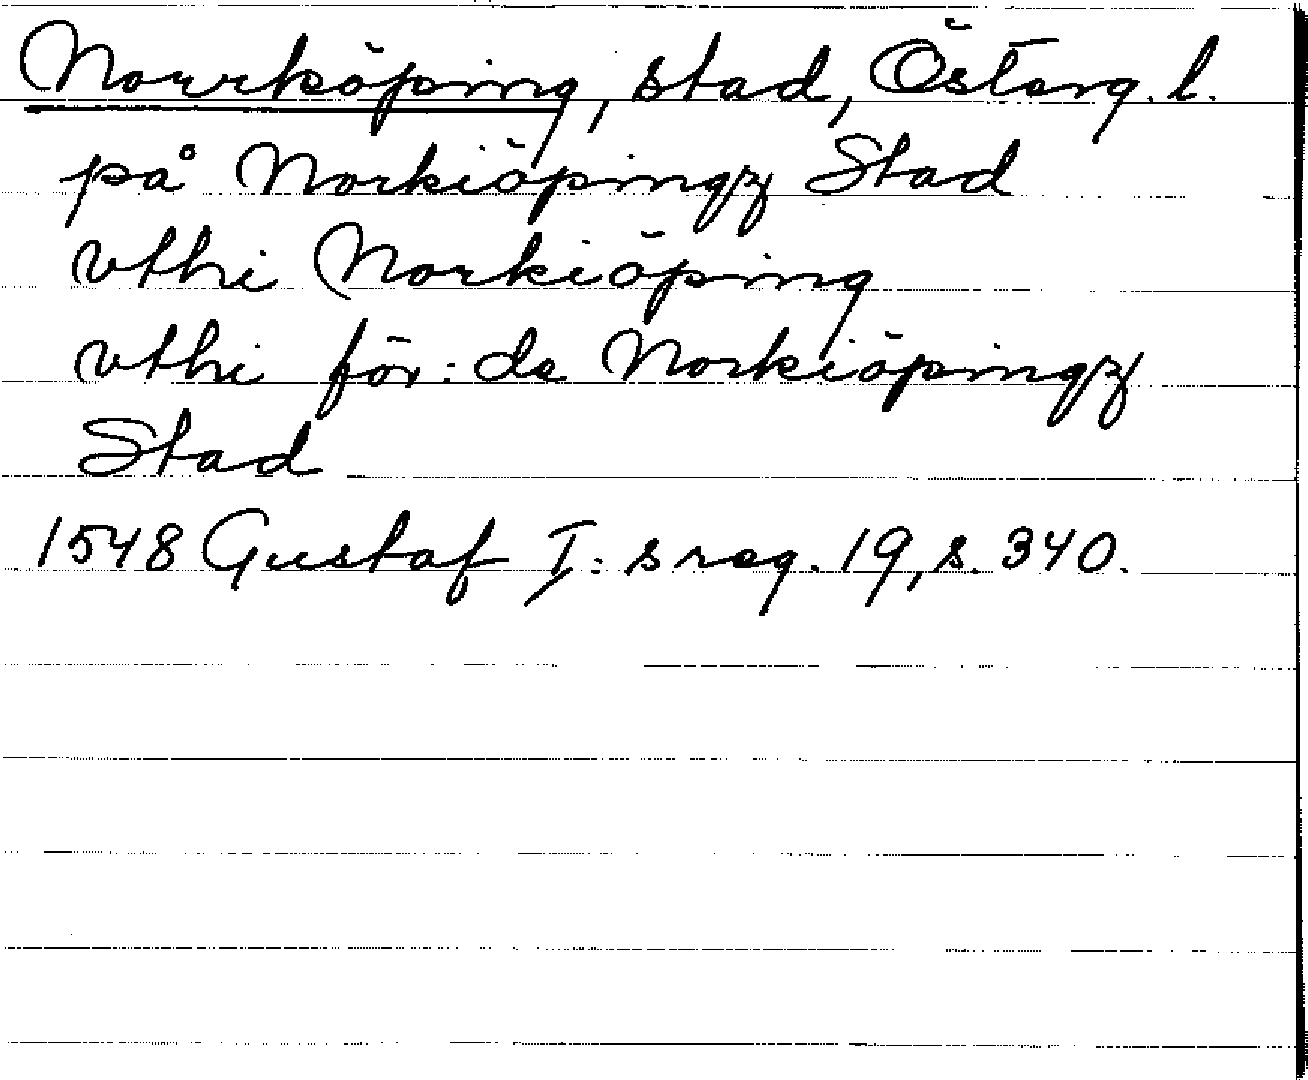 Norrköping, stad, Österg. l.
på Norkiöpingz Stad
vthi Norkiöping
vthi för:de Norkiöpingz
Stad
1548 Gustaf I:s reg. 19, s. 340.